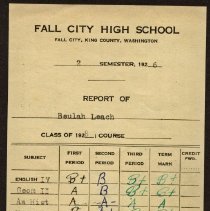 FALL CITY HIGH SCHOOL
FALL CITY, KING COUNTY, WASHINGTON
2 SEMESTER, 1926
REPORT OF
Beulah Leach
CLASS OF 192 COURSE
SUBJECT FIRST PERIOD SECOND PERIOD THIRD PERIOD TERM MARK CREDIT FWD.
ENGLISH IV B+ B B+ B+
Geom II A B A
Am Hist A A-